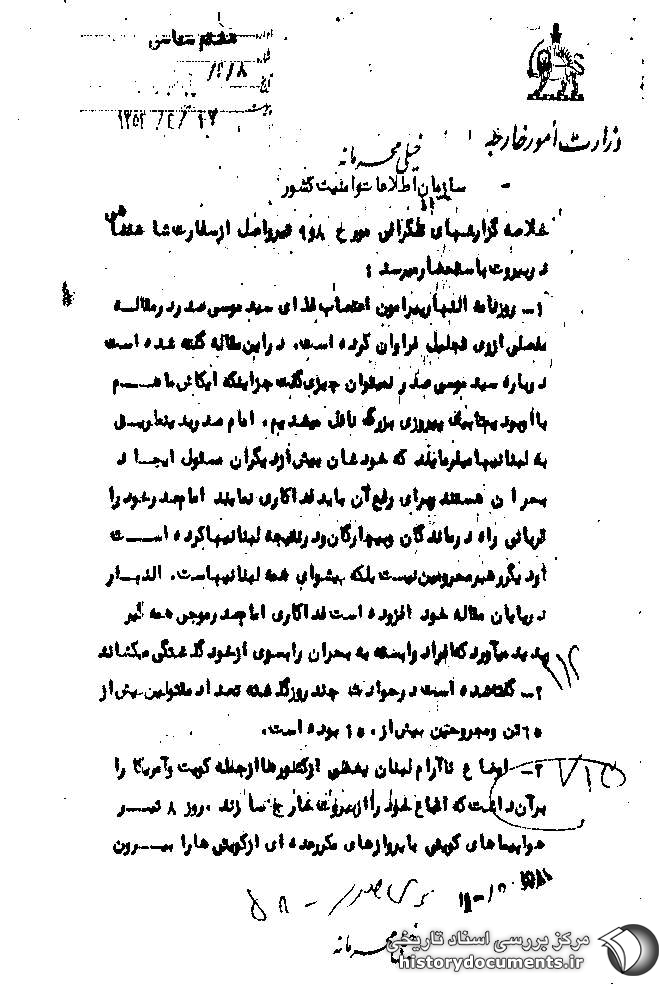 اداره هشتم سیاسی
شماره ۳/۸/
تاریخ
پیوست
۱۳۵۴/۴/۱۷
وزارت امور خارجه
خیلی محرمانه
سازمان اطلاعات و امنیت کشور
خلاصه گزارشهای تلگرافی مورخ ۸ و ۹ تیر واصل از سفارت شاهنشاهی
در بیروت باستحضار میرسد :
۱- روزنامه النهار پیرامون اعتصاب غذای سید موسی صدر در مقاله
مفصلی از وی تجلیل فراوان کرده است. در این مقاله گفته شده است
درباره سید موسی صدر نمیتوان چیزی گفت جز اینکه ایکاش ما هم
با او بودیم تا بیک پیروزی بزرگ نائل میشدیم. امام صدر بدینطریق
به لبنانیها میفرماید که خودشان بیش از دیگران مسئول ایجاد
بحران هستند و برای رفع آن باید فداکاری نمایند امام صدر خود را
قربانی راه درماندگان و بیچارگان و در نتیجه لبنانیها کرده است
او دیگر رهبر محرومین نیست بلکه پیشوای همه لبنانیهاست. النهار
در پایان مقاله خود افزوده است فداکاری امام صدر موجی همه گیر
پدید میآورد که افراد وابسته به بحران را بسوی از خود گذشتگی میکشاند
۲- گفته شده است در حوادث چند روز گذشته تعداد مقتولین بیش از
تن و مجروحین بیش از ۱۵۰ بوده است.
۳- اوضاع ناآرام لبنان بعضی از کشورها از جمله کویت و آمریکا را
برآن داشت که اتباع خود را از بیروت خارج سازند. روز ۸ تیر
هواپیماهای کویتی با پروازهای مکرر عده ای از کویتی ها را بیرون
موسی صدر
خیلی محرمانه
مرکز بررسی اسناد تاریخی
historydocuments.ir